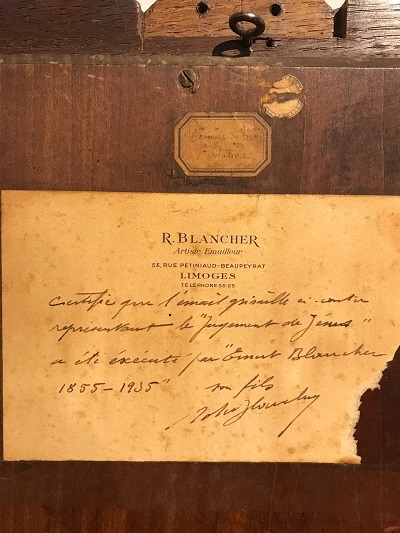 R. BLANCHER
Artiste Emailleur
53, RUE PÉTINIAUD-BEAUPEYRAT
LIMOGES
TÉLÉPHONE 55-25
Certifie que l'émail grisaille ci-contre
représentant le "Jugement de Jésus"
a été exécuté par "Ernest Blancher
1855-1935" son fils